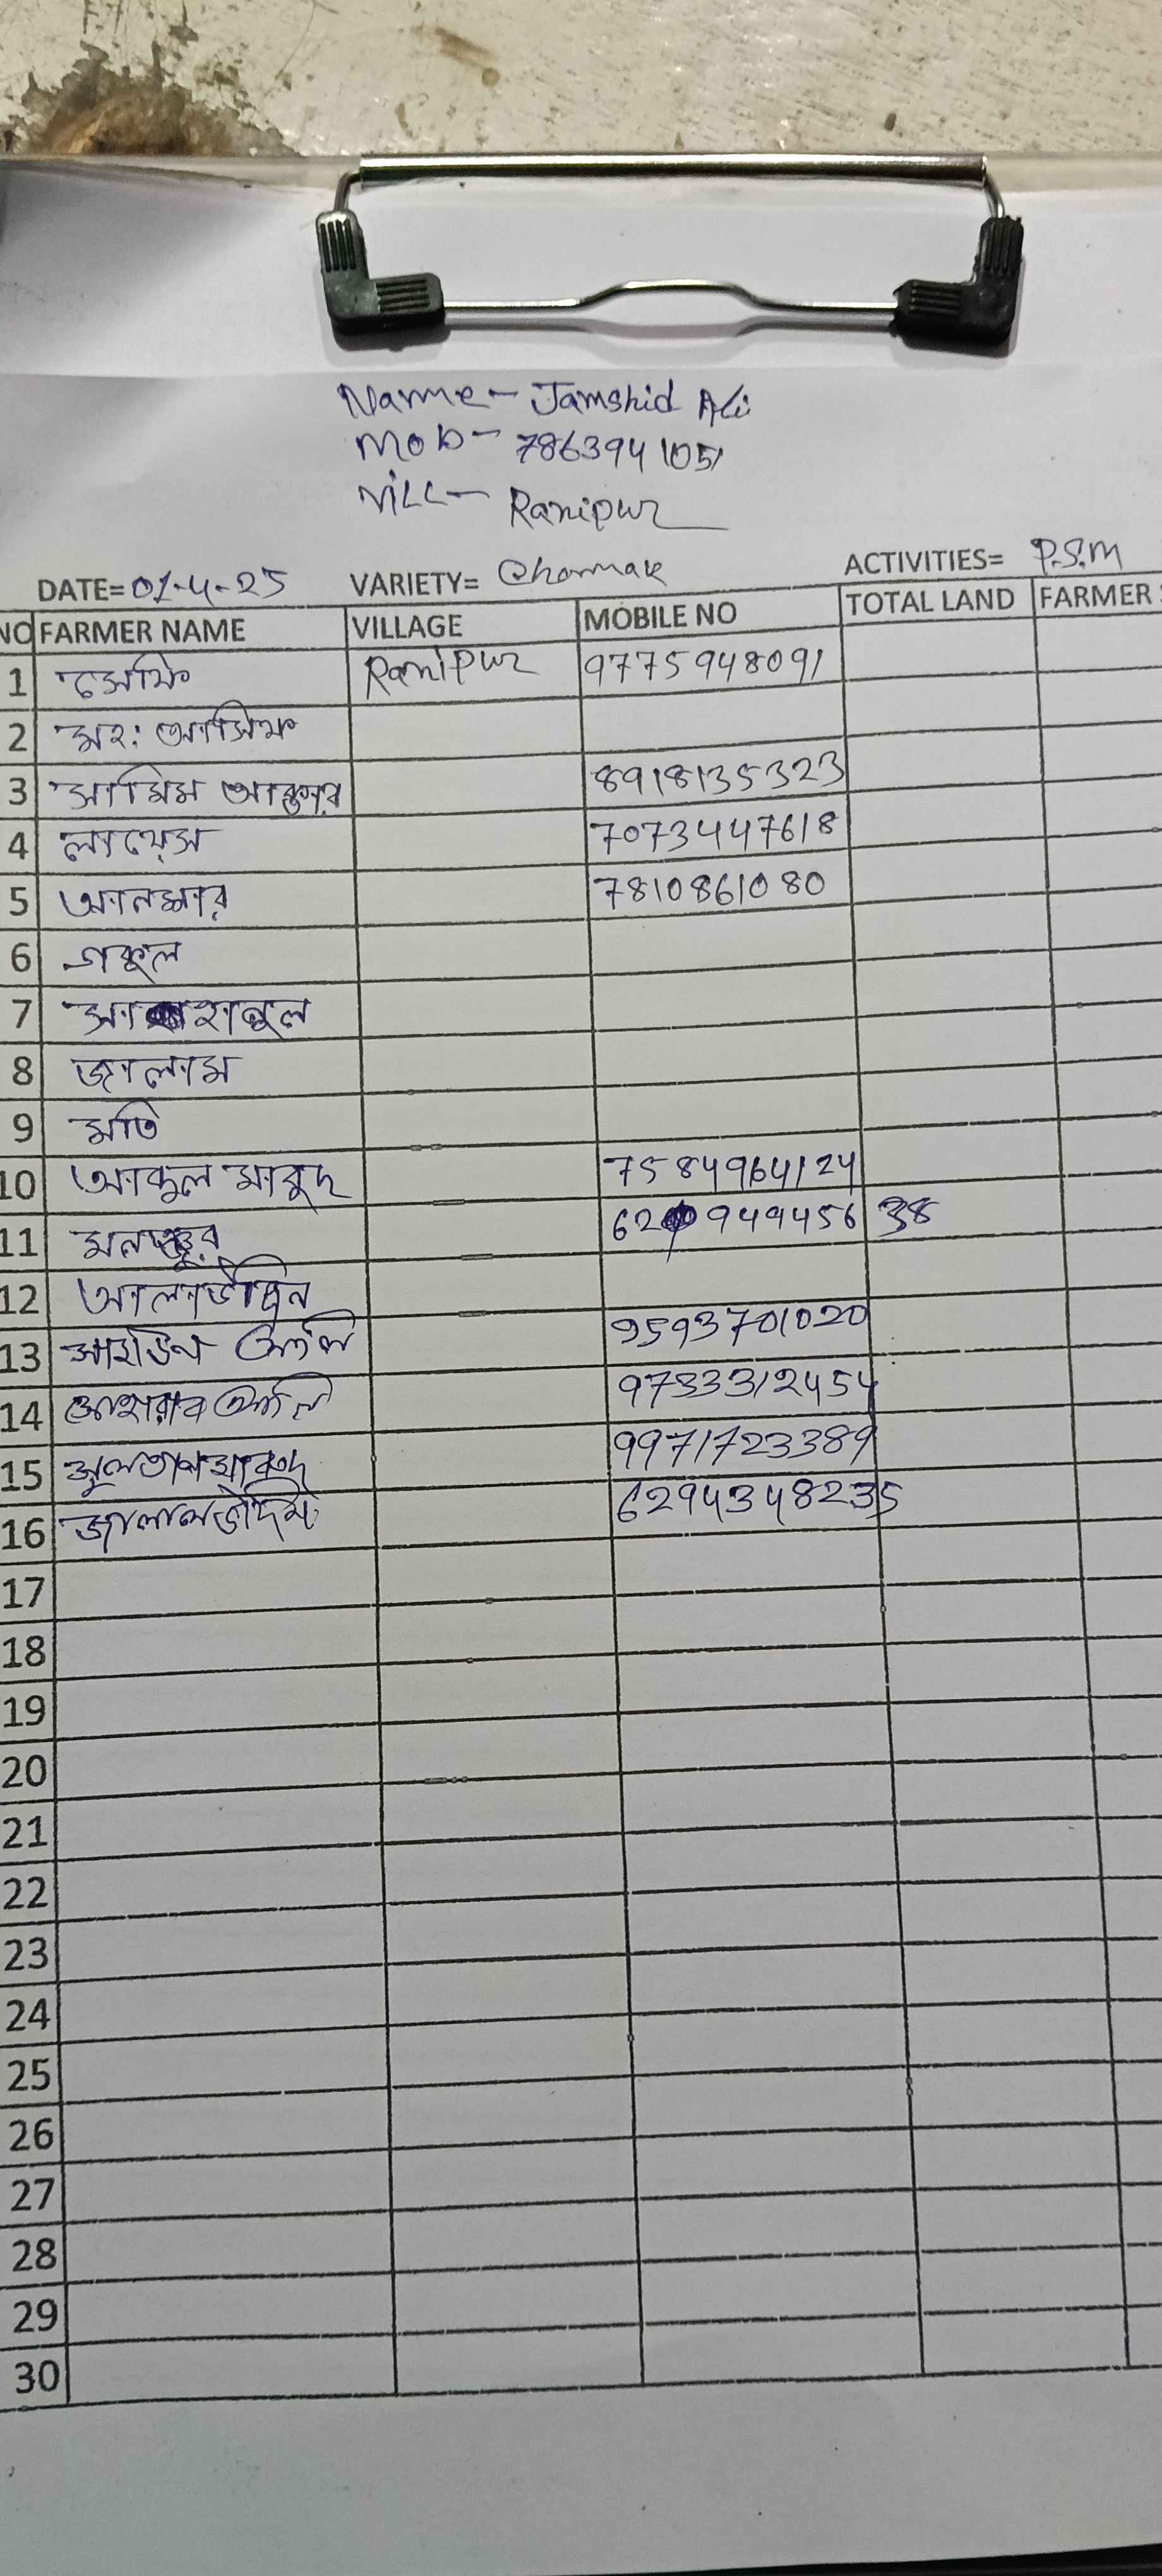 Name - Jamshid Ali
Mob - 7863941051
Vill - Ranipur
DATE= 01-4-25 VARIETY= Chamak ACTIVITIES= P.S.M
NO FARMER NAME VILLAGE MOBILE NO TOTAL LAND FARMER
1 সেফি Ranipur 9775948091
2 মহ: আসিফ
3 সামিম আক্তার 8918135323
4 লায়েস 7073447618
5 আনসার 7810861080
6 একুল
7
8 জালাম
9 মতি
10 আব্দুল মাবুদ 7584964124
11 মনজুর 949456 38
12 আলাউদ্দিন
13 আলি 9593701020
14 আলি 9733312454
15 9971723389
16 জালালউদ্দিন 6294348235
17
18
19
20
21
22
23
24
25
26
27
28
29
30